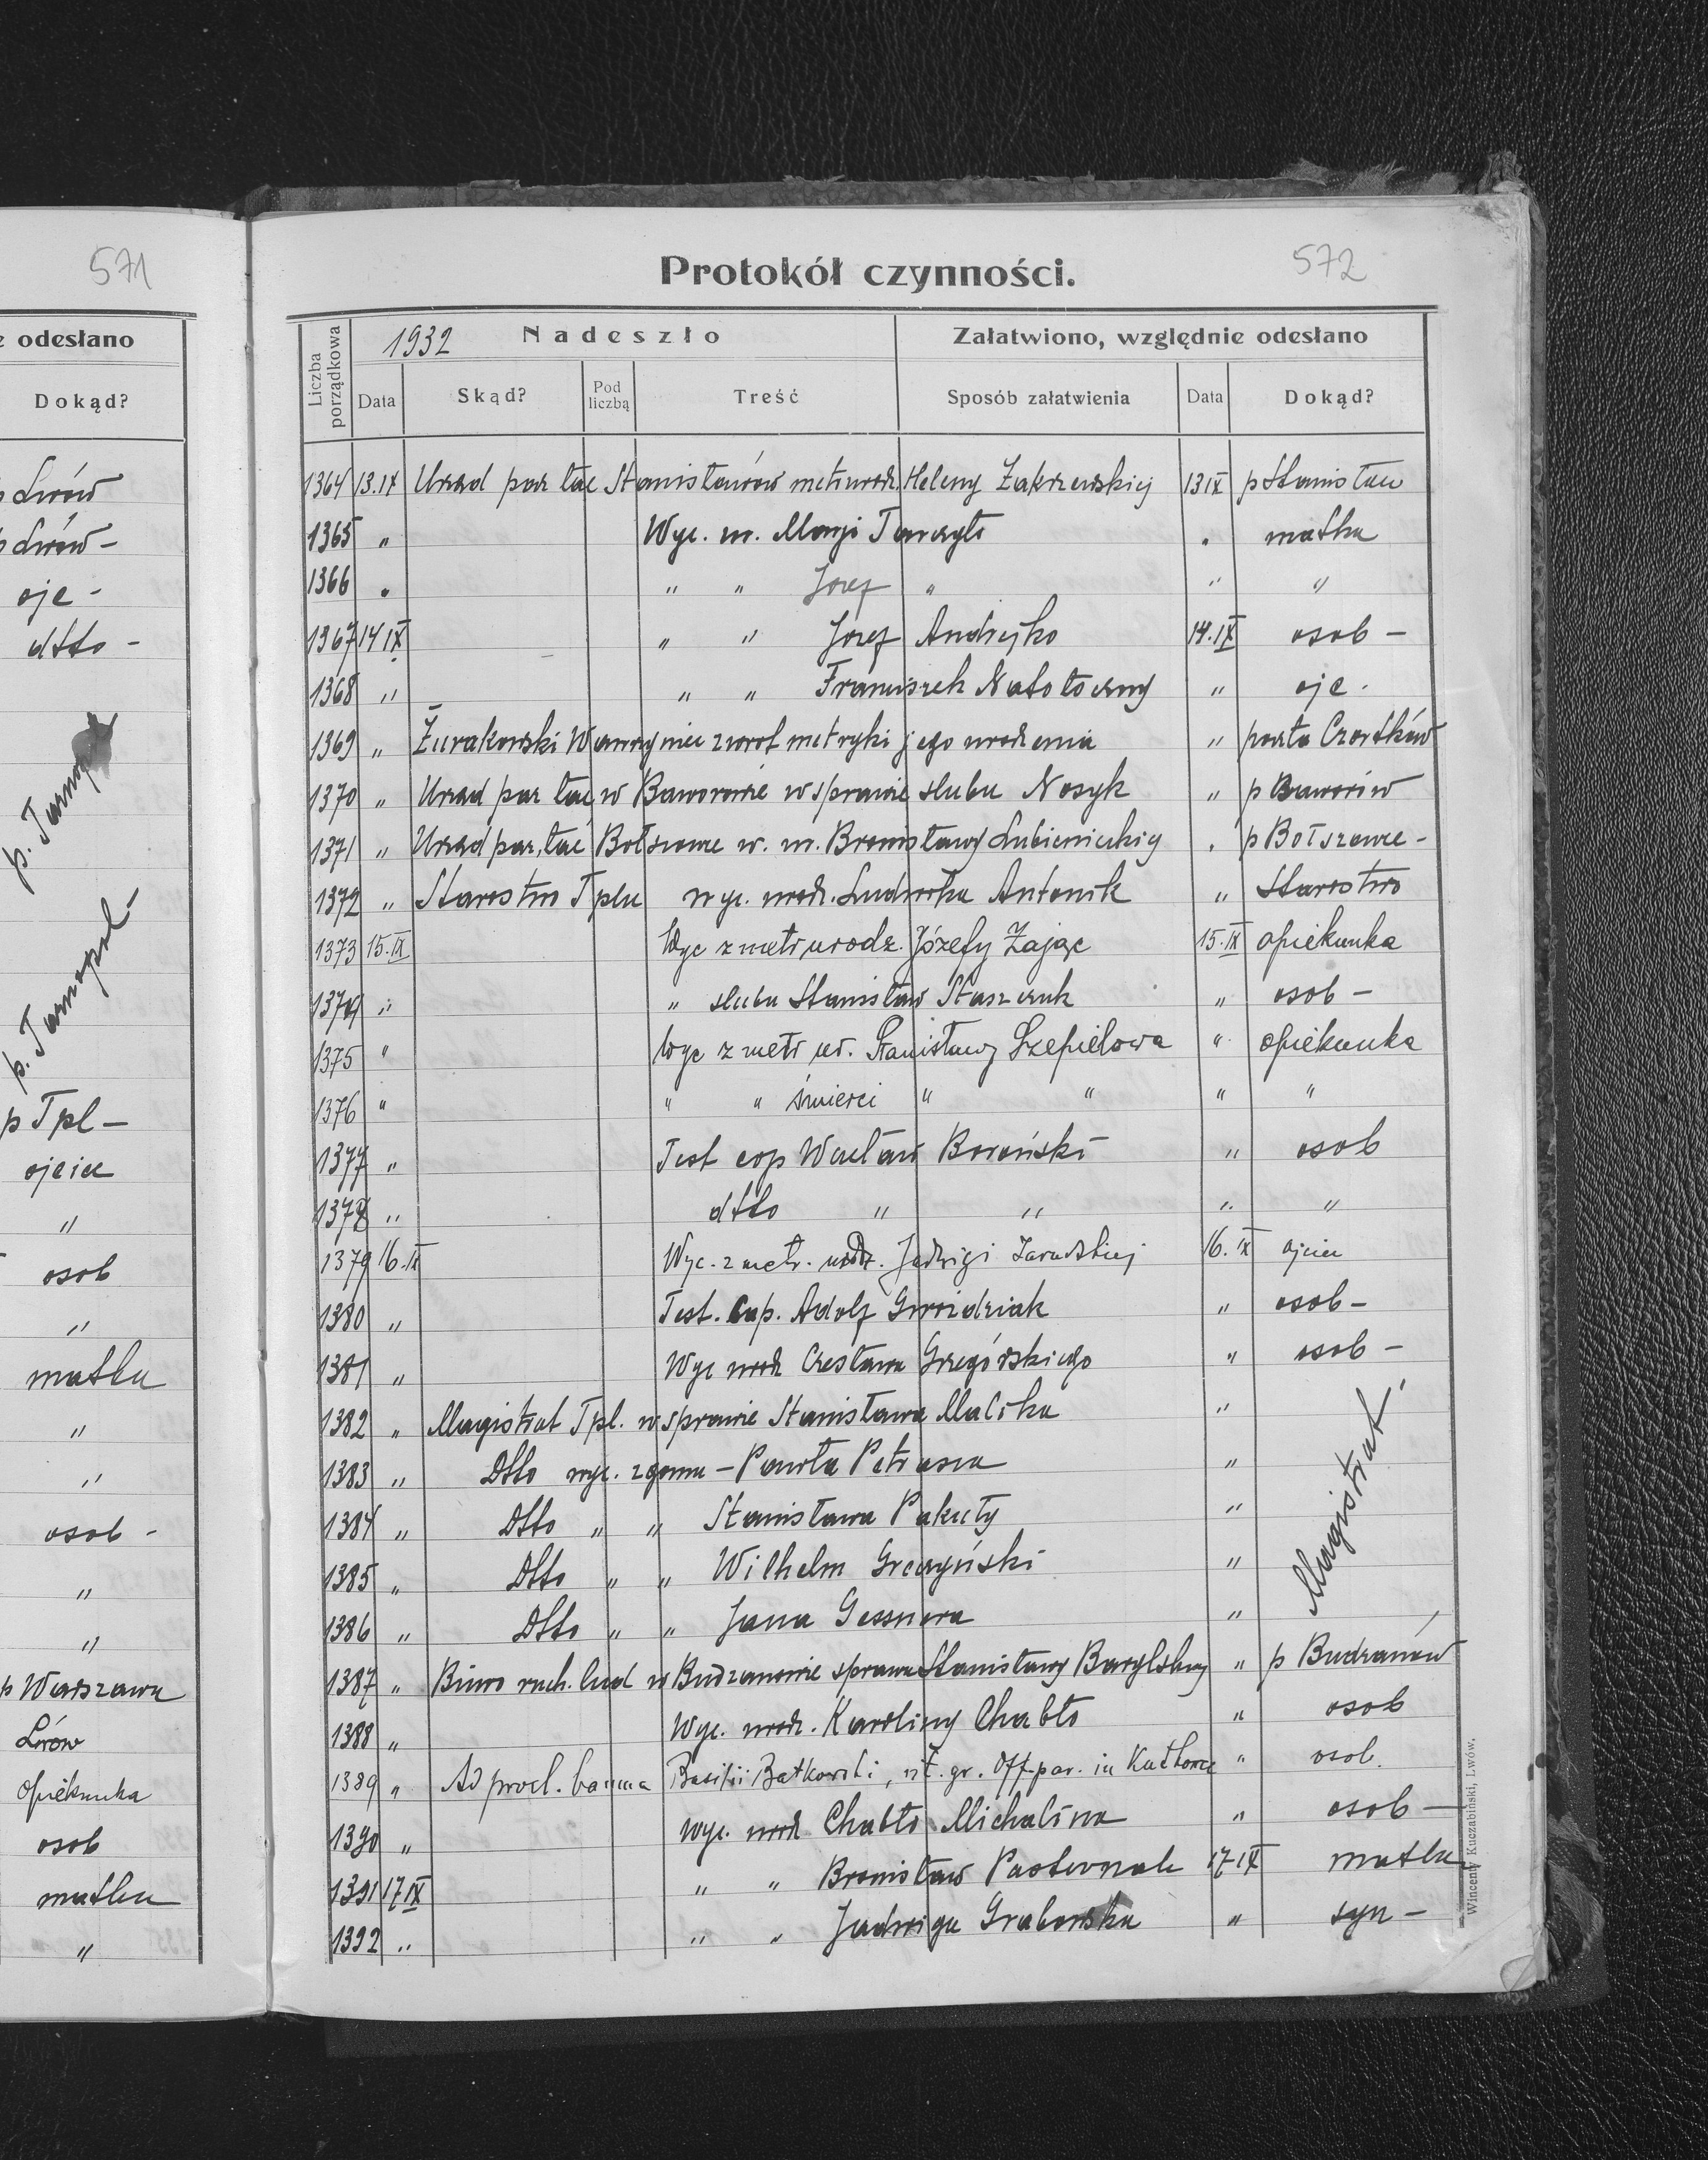 571
e odesłano
Dokąd?
p Lwów
p Lwów -
ojc -
dtto -
p. Tarnopol
p. Tarnopol -
p Tpl -
ojciec
"
osob
"
matka
"
"
osob -
"
"
p Warszawa
Lwów
opiekunka
osob
matka
"
572
Protokół czynności.
Liczba porządkowa
1932 Nadeszło
Załatwiono, względnie odesłano
Data Skąd? Pod liczbą Treść Sposób załatwienia Data Dokąd?
1364 13.IX Urząd par łac Stanisławów metr urodz. Heleny Zakrzewskiej 13 IX p Stanisław
1365 " Wyc. m. Marji Tarczyło " matka
1366 " " " Józef " " "
1367 14 IX " " Józef Andrejko 14.IX osob -
1368 " " " Franciszek Natołoczny " ojc.
1369 " Żurakowski Wawrzyniec zwrot metryki jego urodzenia " poczta Czortków
1370 " Urząd par łac w Baworowie w sprawie slubu Nosyk " p Baworów
1371 " Urząd par. łac Bołszowce w. m. Bronisławy Lubienieckiej " p Bołszowce -
1372 " Starostwo Tplu wyc. urodz. Ludwika Antonik " Starostwo
1373 15.IX Wyc z metr urodz. Józefy Zając 15.IX opiekunka
1374 " " slubu Stanisław Staszczuk " osob -
1375 " Wyc z metr ur. Stanisławy Szepielowa " opiekunka
1376 " " " śmierci " " " "
1377 " Test cop Wacław Boroński " osob
1378 " dtto " " " "
1379 16.IX Wyc. z metr. urodz. Jadwigi Zarudzkiej 16.IX ojciec
1380 " Test. cop. Adolf Gwoździak " osob -
1381 " Wyc urodz Czesława Grzegórskiego " osob -
1382 " Magistrat Tpl. w sprawie Stanisława Malika "
1383 " Dtto wyc. zgonu - Pawła Petrasza "
1384 " Dtto " " Stanisława Pakuły "
1385 " Dtto " " Wilhelm Greczyński "
1386 " Dtto " " Jana Gessnera "
Magistrat -
1387 " Biuro ruch. lud w Budzanowie sprawa Stanisławy Barylskiej " p Budzanów
1388 " Wyc. urodz. Karoliny Chabło " osob
1389 " Ad procl. banna Basilii Batkowski, rit. gr. Off. par. in Kutkowce " osob.
1390 " wyc. urodz Chabło Michalina " osob -
1391 17 IX " " Bronisław Pasternak 17.IX matka
1392 " " " Jadwiga Grabowska " syn -
Wincenty Kuczabiński, Lwów.